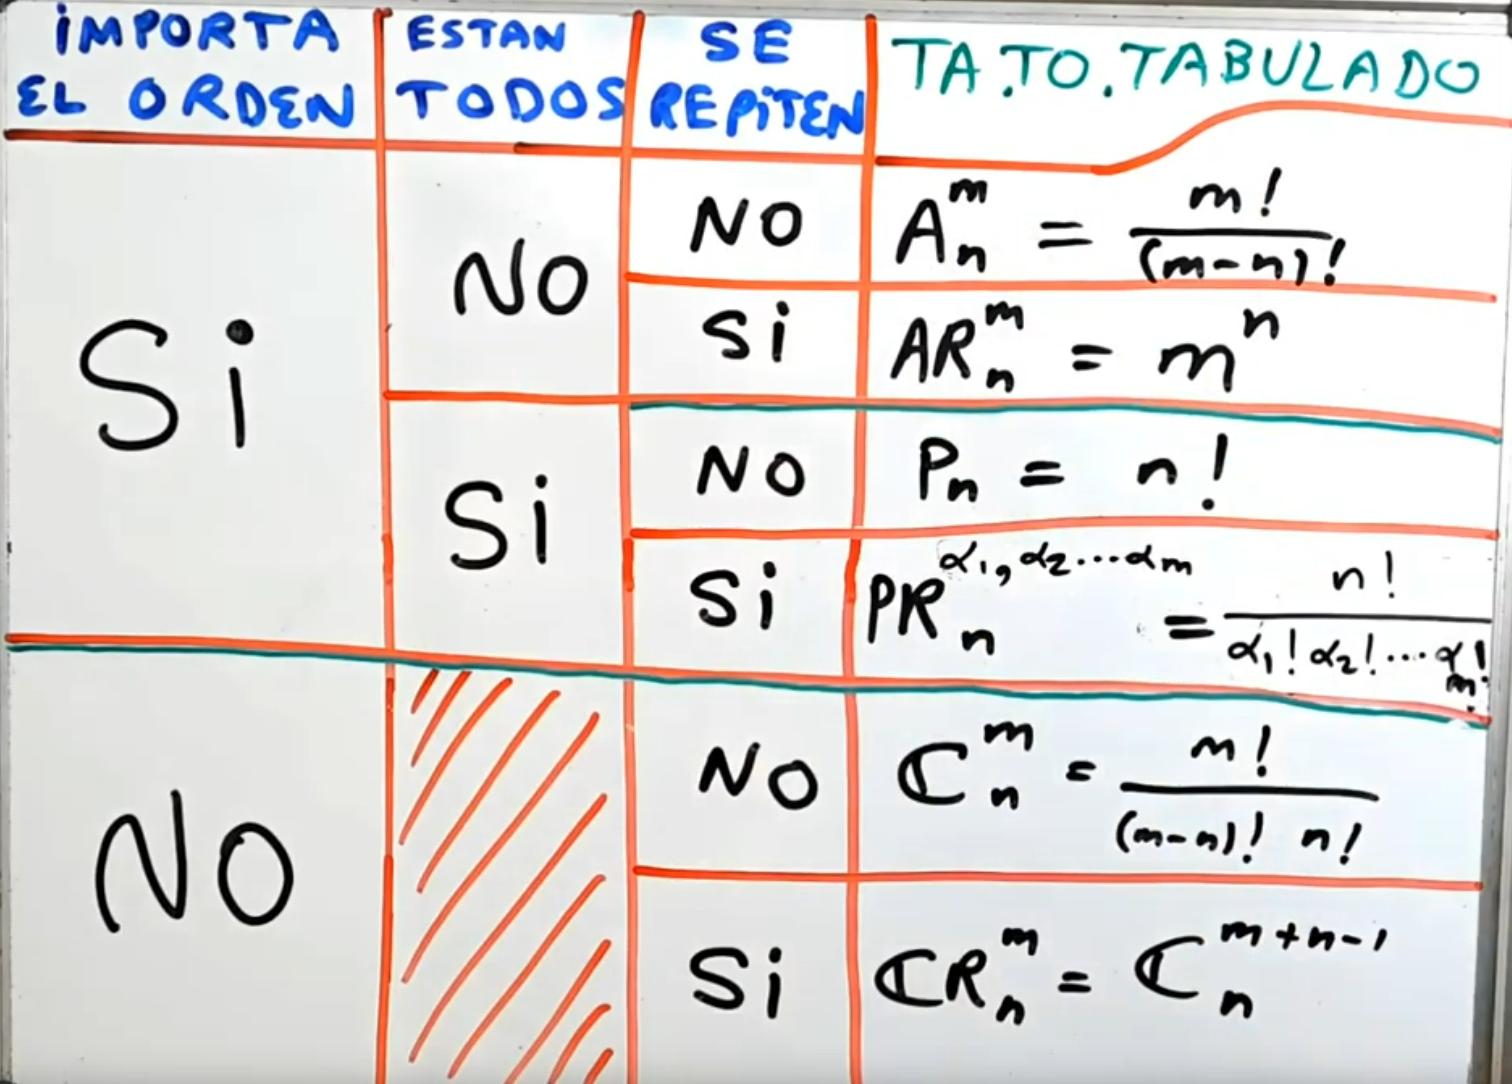 iMPORTA EL ORDEN | ESTAN TODOS | SE REPiTEN | TA.TO.TABULADO
Si | NO | NO | A_n^m = m! / (m-n)!
Si | AR_n^m = m^n
Si | NO | P_n = n!
Si | PR_n^{α1, α2...αm} = n! / α1! α2! ... αm!
NO | NO | ℂ_n^m = m! / (m-n)! n!
Si | ℂR_n^m = ℂ_n^{m+n-1}